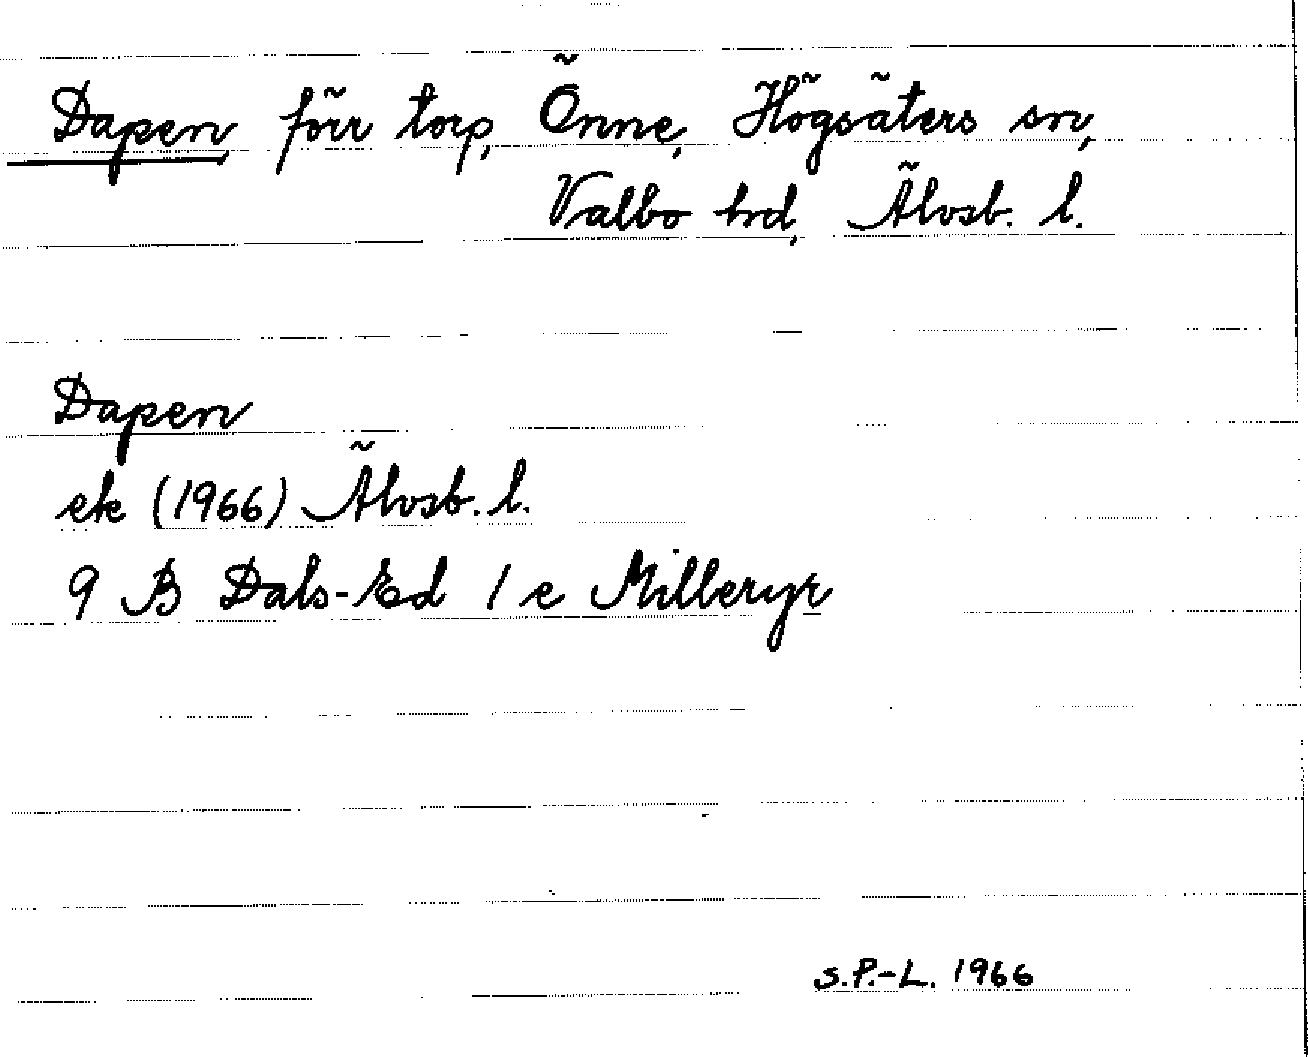 Dapen förr torp, Önne, Högsäters sn,
Valbo hd, Älvsb. l.
Dapen
ek (1966) Älvsb. l.
9 B Dals-Ed 1 e Milleryr
S.P.-L. 1966